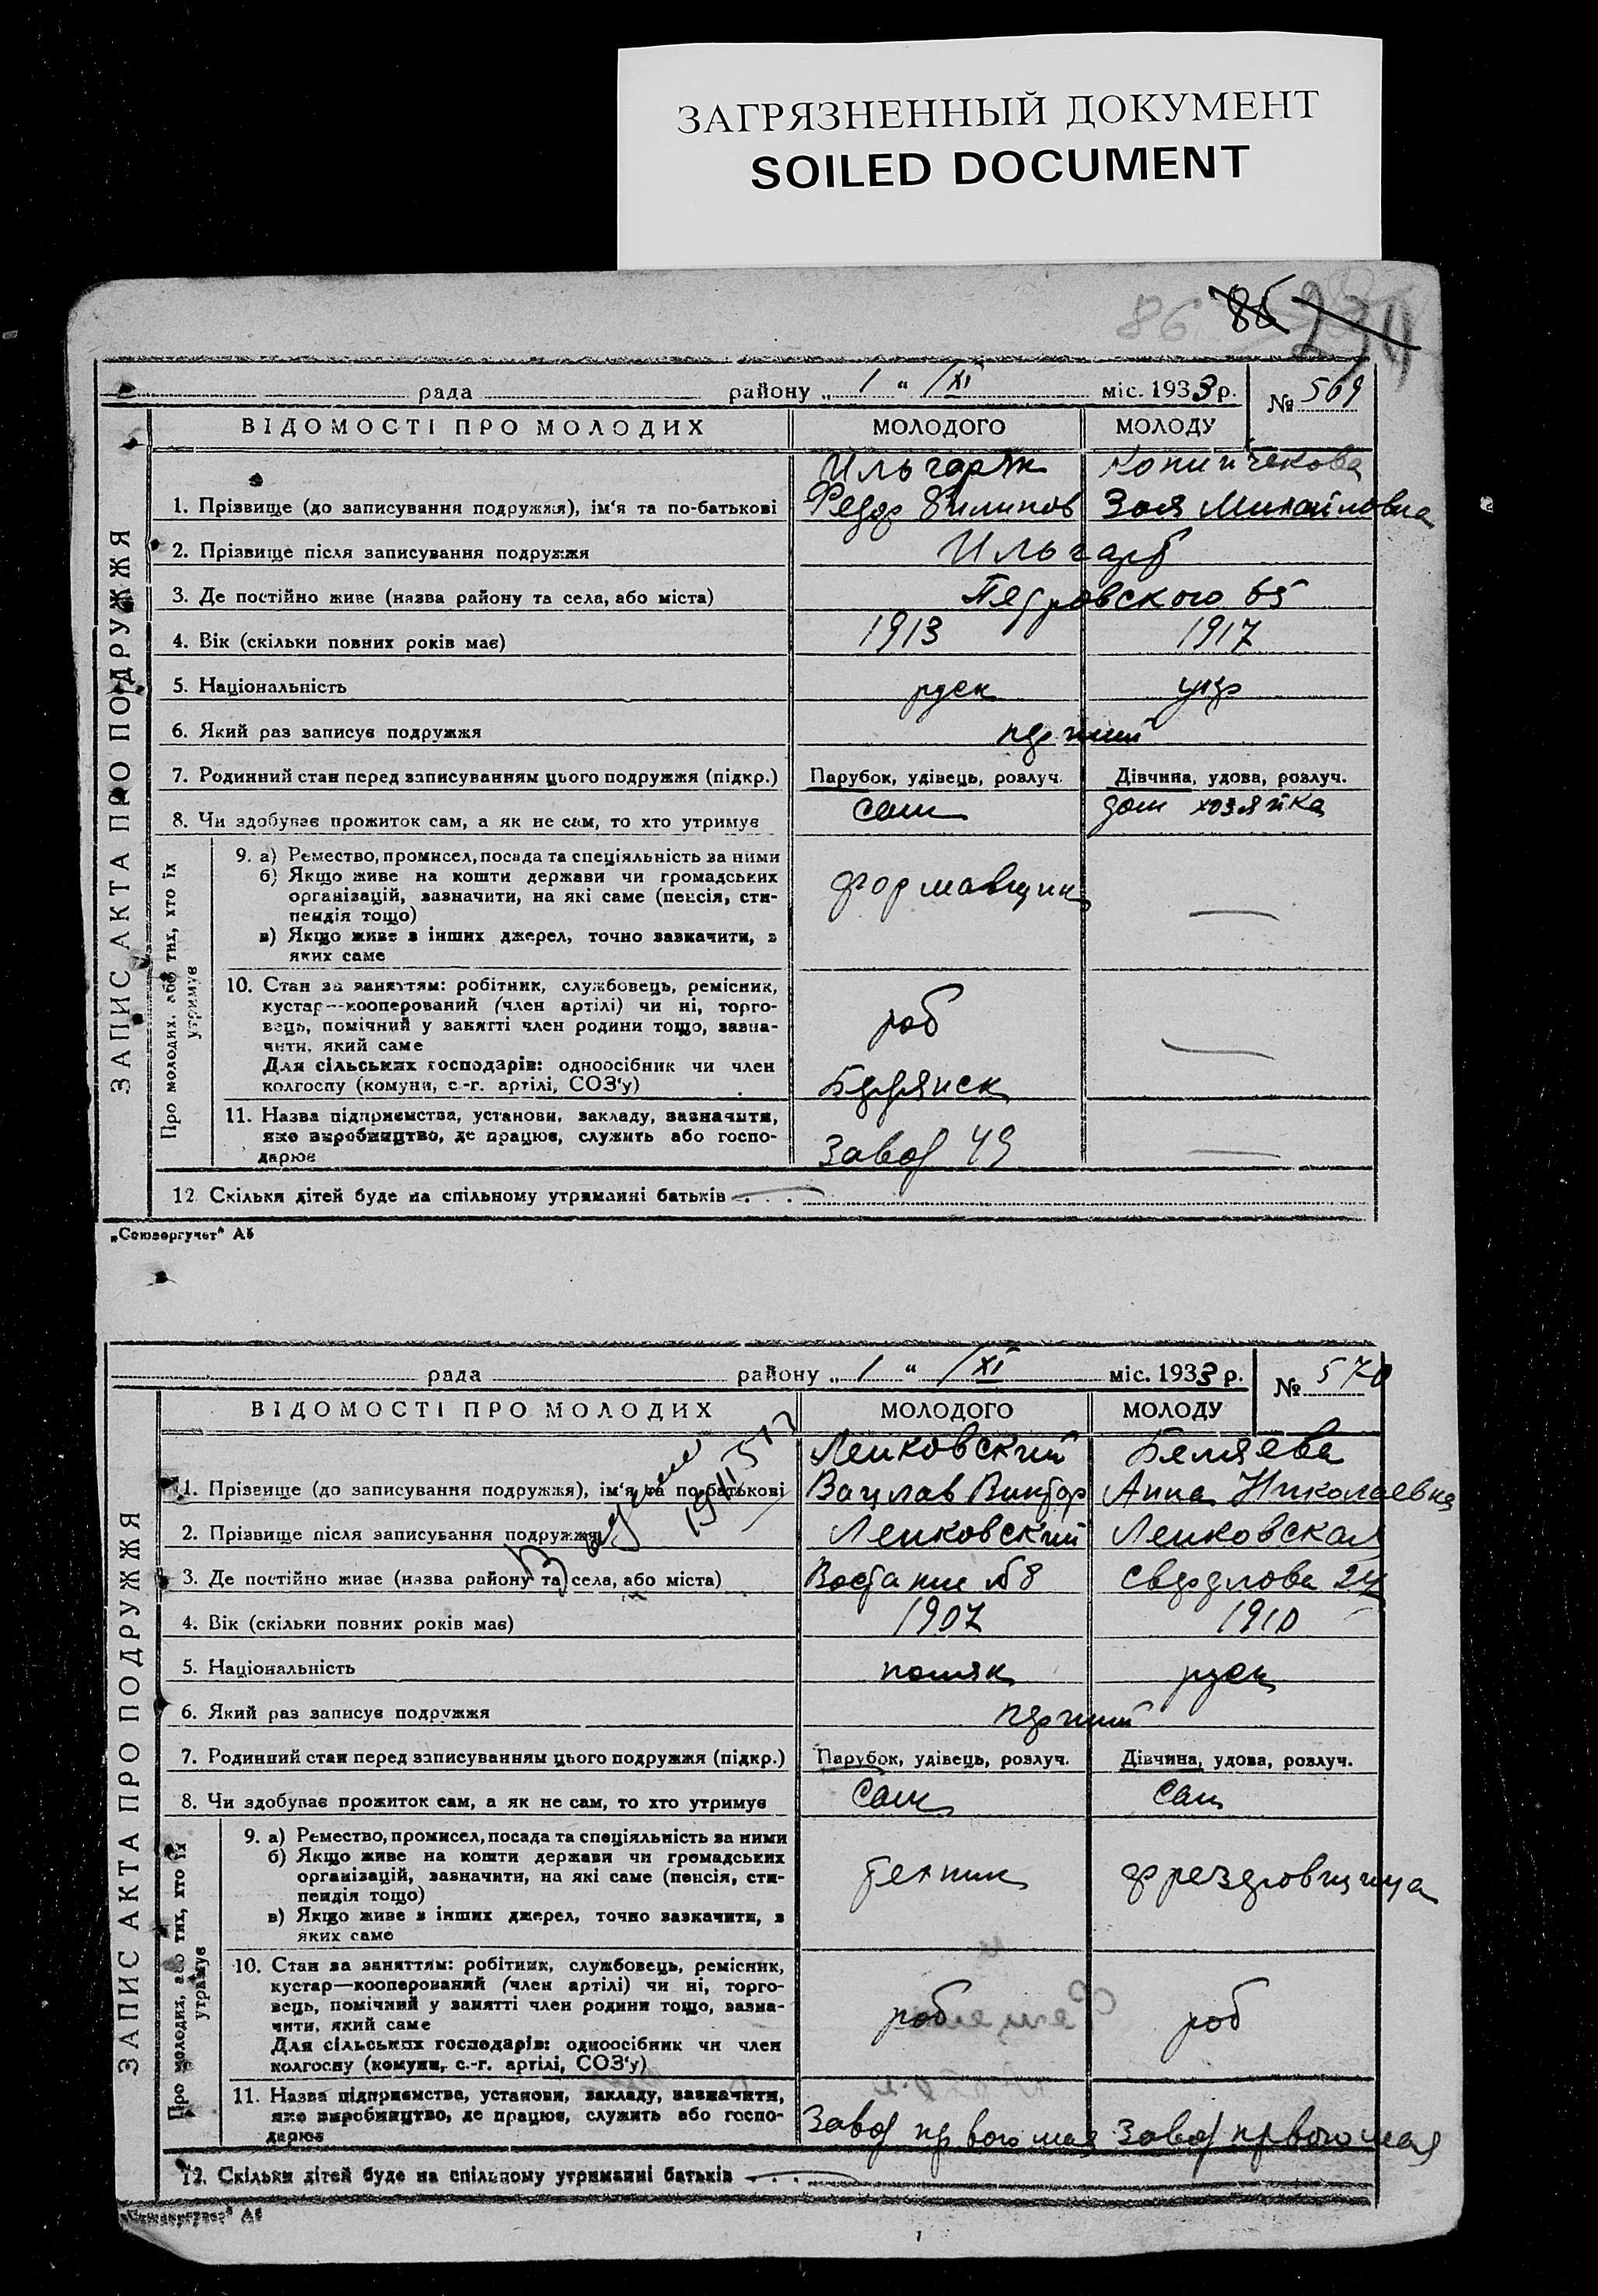 ЗАГРЯЗНЕННЫЙ ДОКУМЕНТ
SOILED DOCUMENT
86 86
рада району „ 1 “ XI міс. 1933 р. № 569
ВІДОМОСТІ ПРО МОЛОДИХ МОЛОДОГО МОЛОДУ
ЗАПИС АКТА ПРО ПОДРУЖЖЯ
1. Прізвище (до записування подружжя), ім'я та по-батькові
Федор Филипов Зоя Михайловна
2. Прізвище після записування подружжя
3. Де постійно живе (назва району та села, або міста) Петровского 65
4. Вік (скільки повних років має) 1913 1917
5. Національність руск укр
6. Який раз записує подружжя перший
7. Родинний стан перед записуванням цього подружжя (підкр.) Парубок, удівець, розлуч. Дівчина, удова, розлуч.
8. Чи здобуває прожиток сам, а як не сам, то хто утримує сам дом хозяйка
Про молодих, або тих, хто їх утримує
9. а) Ремество, промисел, посада та спеціяльність за ними
б) Якщо живе на кошти держави чи громадських
організацій, зазначити, на які саме (пенсія, сти-
пендія тощо)
в) Якщо живе з інших джерел, точно зазначити, з
яких саме
формавщик —
10. Стан за заняттям: робітник, службовець, ремісник,
кустар—кооперований (член артілі) чи ні, торго-
вець, помічний у занятті член родини тощо, зазна-
чити, який саме
Для сільських господарів: одноосібник чи член
колгоспу (комуни, с.-г. артілі, СОЗ'у)
роб —
11. Назва підприємства, установи, закладу, зазначити,
яке виробництво, де працює, служить або госпо-
дарює
Бердянск
Завод 49 —
12. Скільки дітей буде на спільному утриманні батьків —
„Союзоргучет“ А5
рада району „ 1 “ XI міс. 1933 р. № 570
ВІДОМОСТІ ПРО МОЛОДИХ МОЛОДОГО МОЛОДУ
ЗАПИС АКТА ПРО ПОДРУЖЖЯ
Ленковский Беляева
1. Прізвище (до записування подружжя), ім'я та по-батькові Вацлав Виктор Анна Николаевна
2. Прізвище після записування подружжя Ленковский Ленковская
3. Де постійно живе (назва району та села, або міста) Востание №8 Свердлова 24
4. Вік (скільки повних років має) 1907 1910
5. Національність поляк руск
6. Який раз записує подружжя перший
7. Родинний стан перед записуванням цього подружжя (підкр.) Парубок, удівець, розлуч. Дівчина, удова, розлуч.
8. Чи здобуває прожиток сам, а як не сам, то хто утримує сам сам
Про молодих, або тих, хто їх утримує
9. а) Ремество, промисел, посада та спеціяльність за ними
б) Якщо живе на кошти держави чи громадських
організацій, зазначити, на які саме (пенсія, сти-
пендія тощо)
в) Якщо живе з інших джерел, точно зазначити, з
яких саме
техник фрезеровщица
10. Стан за заняттям: робітник, службовець, ремісник,
кустар—кооперований (член артілі) чи ні, торго-
вець, помічний у занятті член родини тощо, зазна-
чити, який саме
Для сільських господарів: одноосібник чи член
колгоспу (комуни, с.-г. артілі, СОЗ'у)
роб роб
11. Назва підприємства, установи, закладу, зазначити,
яке виробництво, де працює, служить або госпо-
дарює
Завод первого мая Завод первого мая
12. Скільки дітей буде на спільному утриманні батьків —
„Союзоргучет“ А5